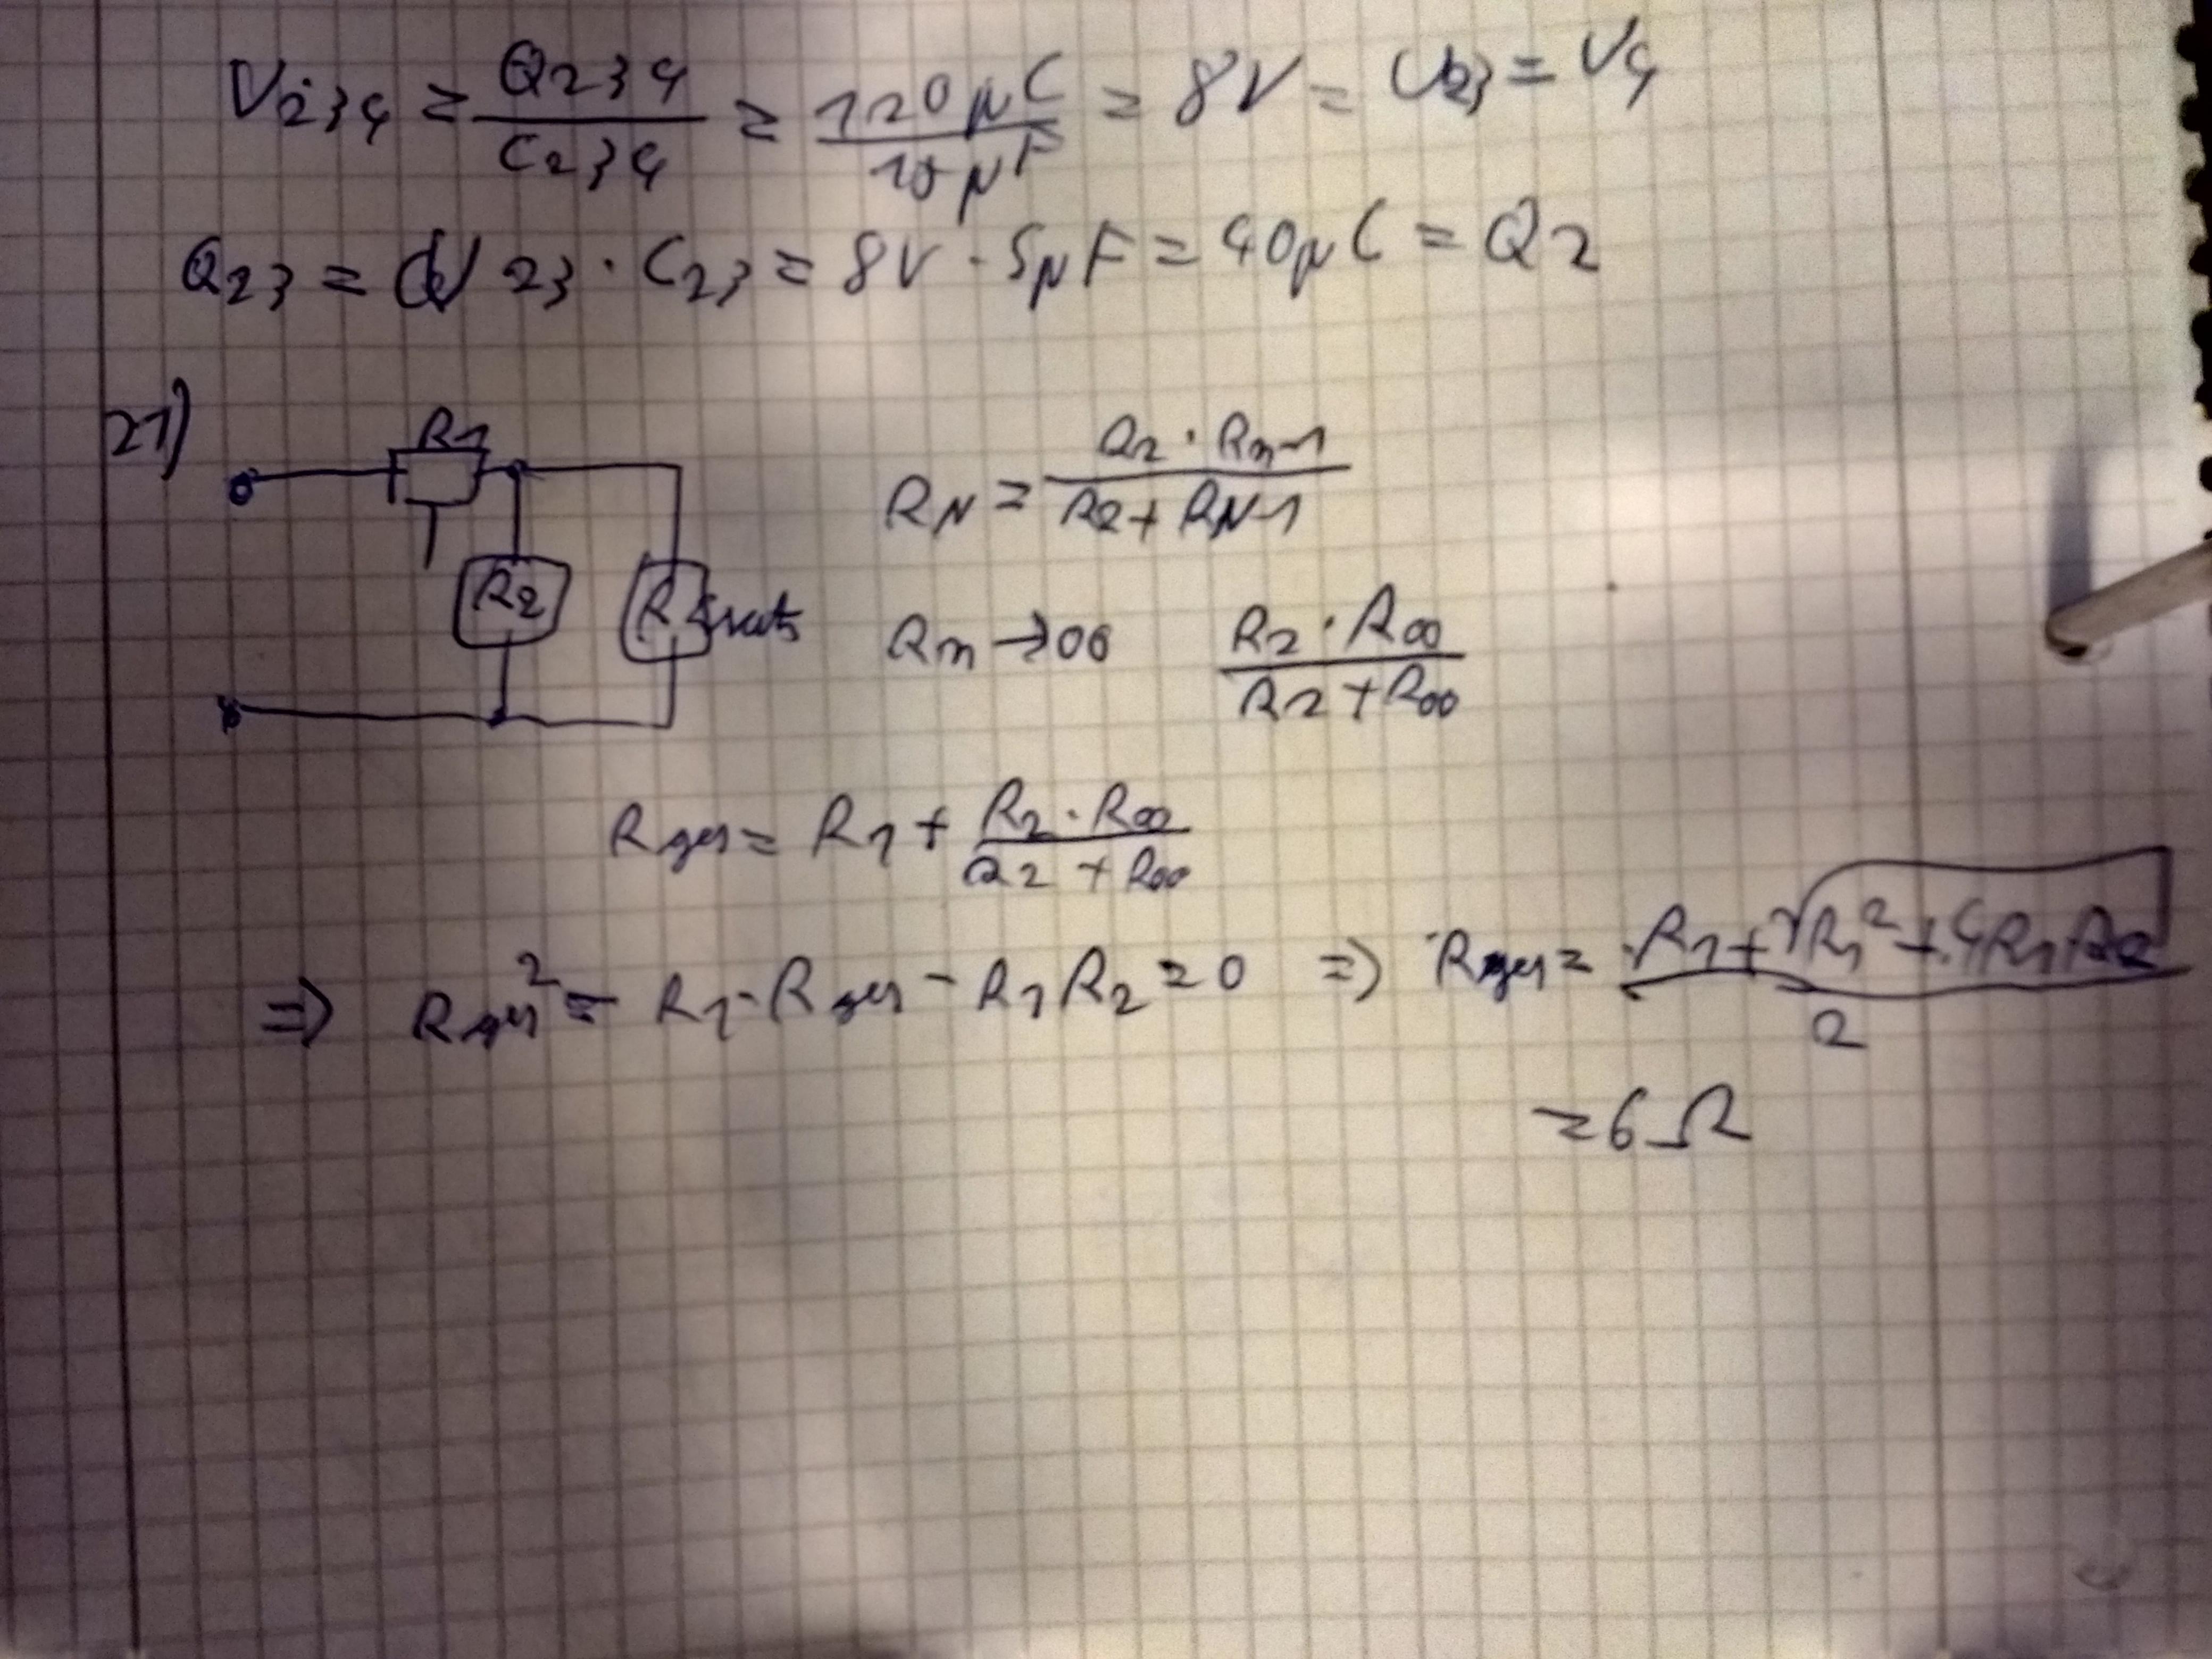 V234 = Q234 / C234 = 120µC / 15µF = 8V = U23 = V4
Q23 = U23 · C23 = 8V · 5µF = 40µC = Q2
21)
R1
R2
R Ersatz
RN = R2 · Rn-1 / R2 + RN-1
Rn → ∞ R2 · R∞ / R2 + R∞
Rges = R1 + R2 · R∞ / R2 + R∞
=> Rges² - R1 · Rges - R1 R2 = 0 => Rges = R1 + √R1² + 4R1 · R2 / 2
= 6 Ω